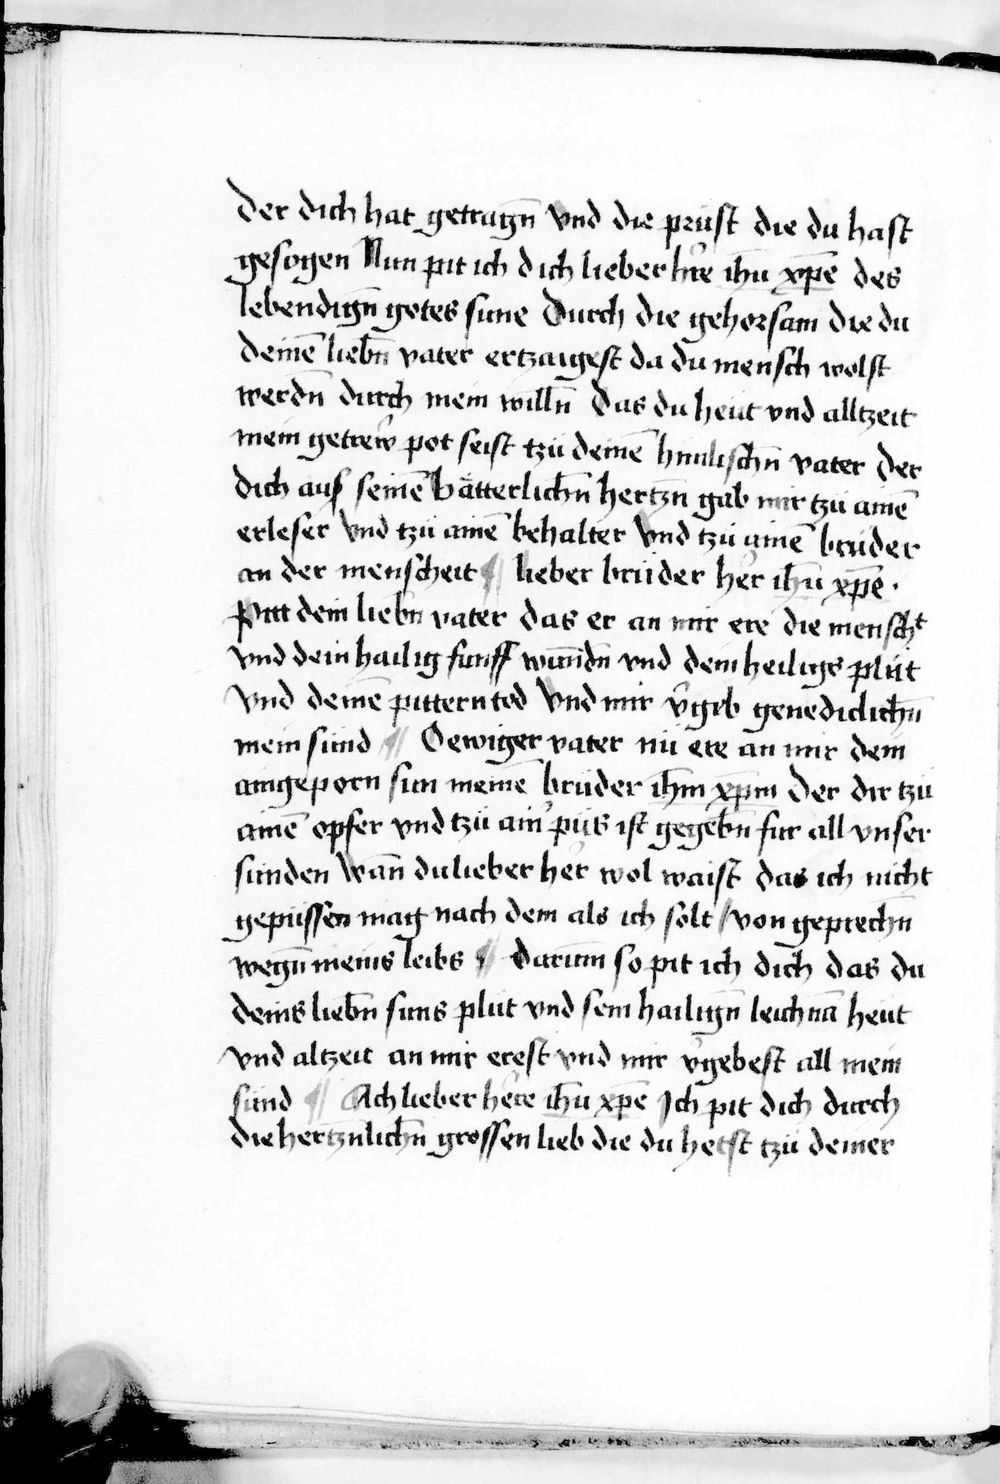 der dich hat getragn̄ vnd die prüst die du hast
gesogen Nun pit ich dich lieber h̉re ih̄u xp̄e des
lebendign̄ gotes sune Durch die gehorsam die du
deinē liebn̄ vater ertzaigest da du mensch wolst
werdn̄ durch mein willn̄ das du heut vnd alltzeit
mein getrew̉ pot seist tzü deinē himlischn̄ vater der
dich aus seinē vätterlichn̄ hertzn̄ gab mir tzü ainē
erleser vnd tzü ainē behalter vnd tzü ainē brüder
an der menscheit ¶ lieber brüder her̉ ih̄u xp̄e .
Pitt dein liebn̄ vater das er an mir ere die menschᵗ
vnd dein hailig funff wundn̄ vnd dein heiligs plüt
vnd deinē pittern tod vnd mir v̉gib genediclichn̄
mein sünd ¶ O ewiger vater nü ere an mir dein
aingeporn sun meinē brüder ih̄m xp̄m der dir tzü
ainē opfer vnd tzü ain̉ püs ist gegebn̄ fur all vnser
sünden wan̄ du lieber her̉ wol waist das ich nicht
gepüssen mag nach dem als ich solt / von geprechn̄
wegn̄ meins leibs ¶ Darum̄ so pit ich dich das du
deins liebn̄ suns plüt vnd sein hailign̄ leichnā heüt
vnd altzeit an mir erest vnd mir v̉gebest all mein
sünd ¶ Ach lieber her̉e ih̄u xp̄e Ich pit dich durch
die hertznlichn̄ grossen lieb die du hetst tzü deiner